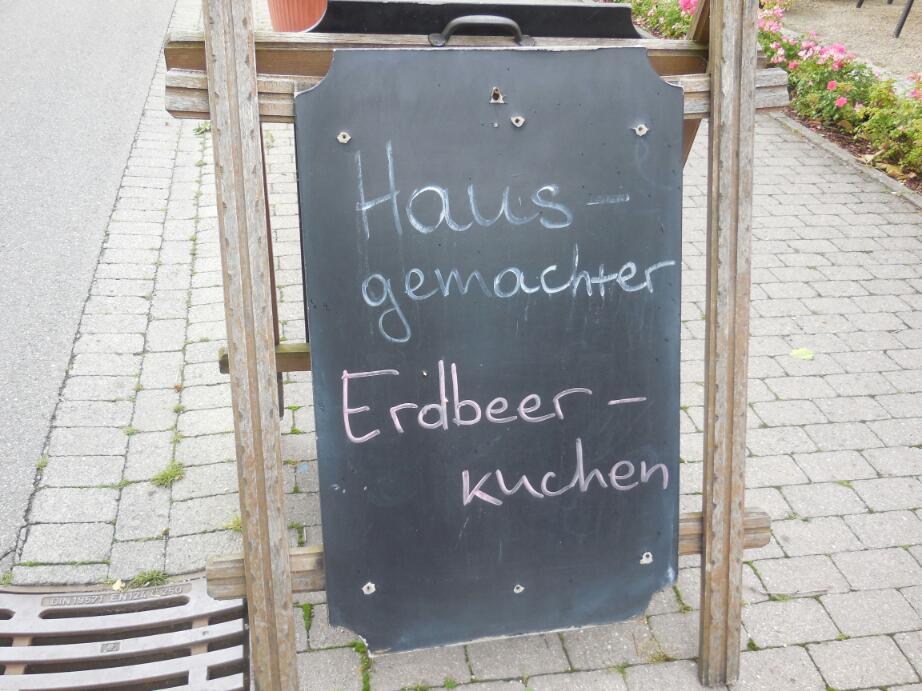 Haus-
gemachter
Erdbeer-
kuchen
DIN 19571 EN124